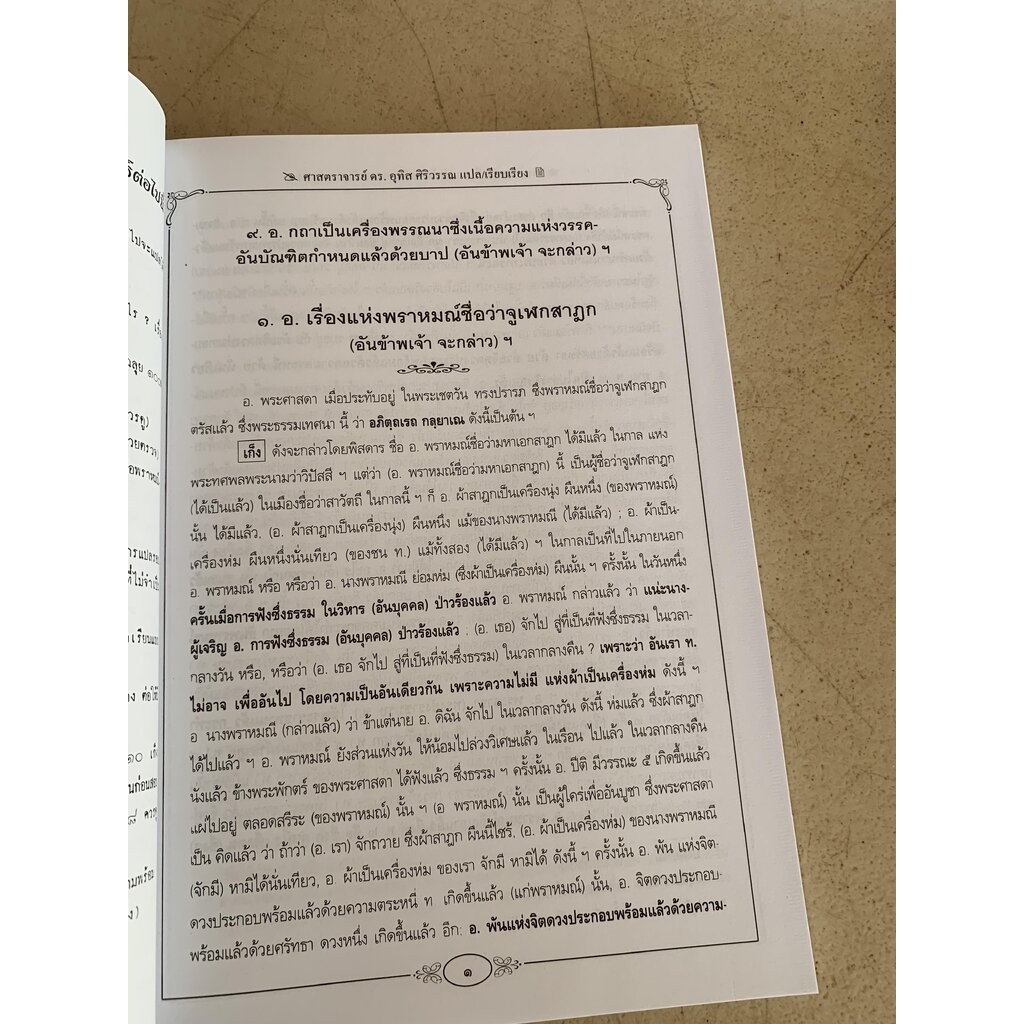 ศาสตราจารย์ ดร. อุทิส ศิริวรรณ แปล/เรียบเรียง
๙. อ. กถาเป็นเครื่องพรรณนาซึ่งเนื้อความแห่งวรรค-
อันบัณฑิตกำหนดแล้วด้วยบาป (อันข้าพเจ้า จะกล่าว) ฯ
๑. อ. เรื่องแห่งพราหมณ์ชื่อว่าจูเฬกสาฎก
(อันข้าพเจ้า จะกล่าว) ฯ
อ. พระศาสดา เมื่อประทับอยู่ ในพระเชตวัน ทรงปรารภ ซึ่งพราหมณ์ชื่อว่าจูเฬกสาฎก
ตรัสแล้ว ซึ่งพระธรรมเทศนา นี้ ว่า อภิตฺถเรถ กลฺยาเณ ดังนี้เป็นต้น ฯ
เก็ง ดังจะกล่าวโดยพิสดาร ชื่อ อ. พราหมณ์ชื่อว่ามหาเอกสาฎก ได้มีแล้ว ในกาล แห่ง
พระทศพลพระนามว่าวิปัสสี ฯ แต่ว่า (อ. พราหมณ์ชื่อว่ามหาเอกสาฎก) นี้ เป็นผู้ชื่อว่าจูเฬกสาฎก
(ได้เป็นแล้ว) ในเมืองชื่อว่าสาวัตถี ในกาลนี้ ฯ ก็ อ. ผ้าสาฎกเป็นเครื่องนุ่ง ผืนหนึ่ง (ของพราหมณ์)
นั้น ได้มีแล้ว. (อ. ผ้าสาฎกเป็นเครื่องนุ่ง) ผืนหนึ่ง แม้ของนางพราหมณี (ได้มีแล้ว) ; อ. ผ้าเป็น-
เครื่องห่ม ผืนหนึ่งนั่นเทียว (ของชน ท.) แม้ทั้งสอง (ได้มีแล้ว) ฯ ในกาลเป็นที่ไปในภายนอก
อ. พราหมณ์ หรือ หรือว่า อ. นางพราหมณี ย่อมห่ม (ซึ่งผ้าเป็นเครื่องห่ม) ผืนนั้น ฯ ครั้งนั้น ในวันหนึ่ง
ครั้นเมื่อการฟังซึ่งธรรม ในวิหาร (อันบุคคล) ป่าวร้องแล้ว อ. พราหมณ์ กล่าวแล้ว ว่า แน่ะนาง-
ผู้เจริญ อ. การฟังซึ่งธรรม (อันบุคคล) ป่าวร้องแล้ว . (อ. เธอ) จักไป สู่ที่เป็นที่ฟังซึ่งธรรม ในเวลา-
กลางวัน หรือ, หรือว่า (อ. เธอ จักไป สู่ที่เป็นที่ฟังซึ่งธรรม) ในเวลากลางคืน ? เพราะว่า อันเรา ท.
ไม่อาจ เพื่ออันไป โดยความเป็นอันเดียวกัน เพราะความไม่มี แห่งผ้าเป็นเครื่องห่ม ดังนี้ ฯ
อ นางพราหมณี (กล่าวแล้ว) ว่า ข้าแต่นาย อ. ดิฉัน จักไป ในเวลากลางวัน ดังนี้ ห่มแล้ว ซึ่งผ้าสาฎก
ได้ไปแล้ว ฯ อ. พราหมณ์ ยังส่วนแห่งวัน ให้น้อมไปล่วงวิเศษแล้ว ในเรือน ไปแล้ว ในเวลากลางคืน
นั่งแล้ว ข้างพระพักตร์ ของพระศาสดา ได้ฟังแล้ว ซึ่งธรรม ฯ ครั้งนั้น อ. ปีติ มีวรรณะ ๕ เกิดขึ้นแล้ว
แผ่ไปอยู่ ตลอดสรีระ (ของพราหมณ์) นั้น ฯ (อ พราหมณ์) นั้น เป็นผู้ใคร่เพื่ออันบูชา ซึ่งพระศาสดา
เป็น คิดแล้ว ว่า ถ้าว่า (อ. เรา) จักถวาย ซึ่งผ้าสาฎก ผืนนี้ไซร้, (อ. ผ้าเป็นเครื่องห่ม) ของนางพราหมณี
(จักมี) หามิได้นั่นเทียว, อ. ผ้าเป็นเครื่องห่ม ของเรา จักมี หามิได้ ดังนี้ ฯ ครั้งนั้น อ. พัน แห่งจิต-
ดวงประกอบพร้อมแล้วด้วยความตระหนี่ ท เกิดขึ้นแล้ว (แก่พราหมณ์) นั้น, อ. จิตดวงประกอบ-
พร้อมแล้วด้วยศรัทธา ดวงหนึ่ง เกิดขึ้นแล้ว อีก: อ. พันแห่งจิตดวงประกอบพร้อมแล้วด้วยความ-
๑